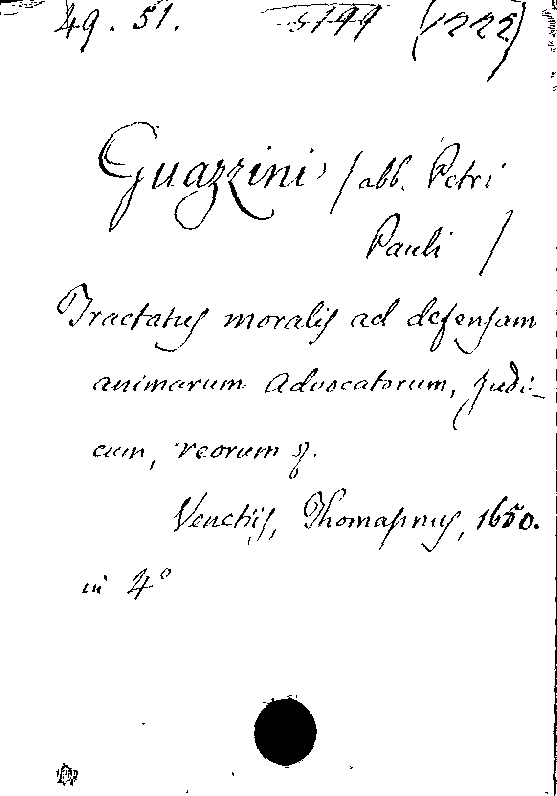 49. 51. 5199 (1222)
Guazzini, /abb. Petri
Pauli /
Tractatus moralis ad defensam
animarum Advocatorum, Judi-
cum, reorum &.
Venetiis, Thomasinus, 1650.
in 4°